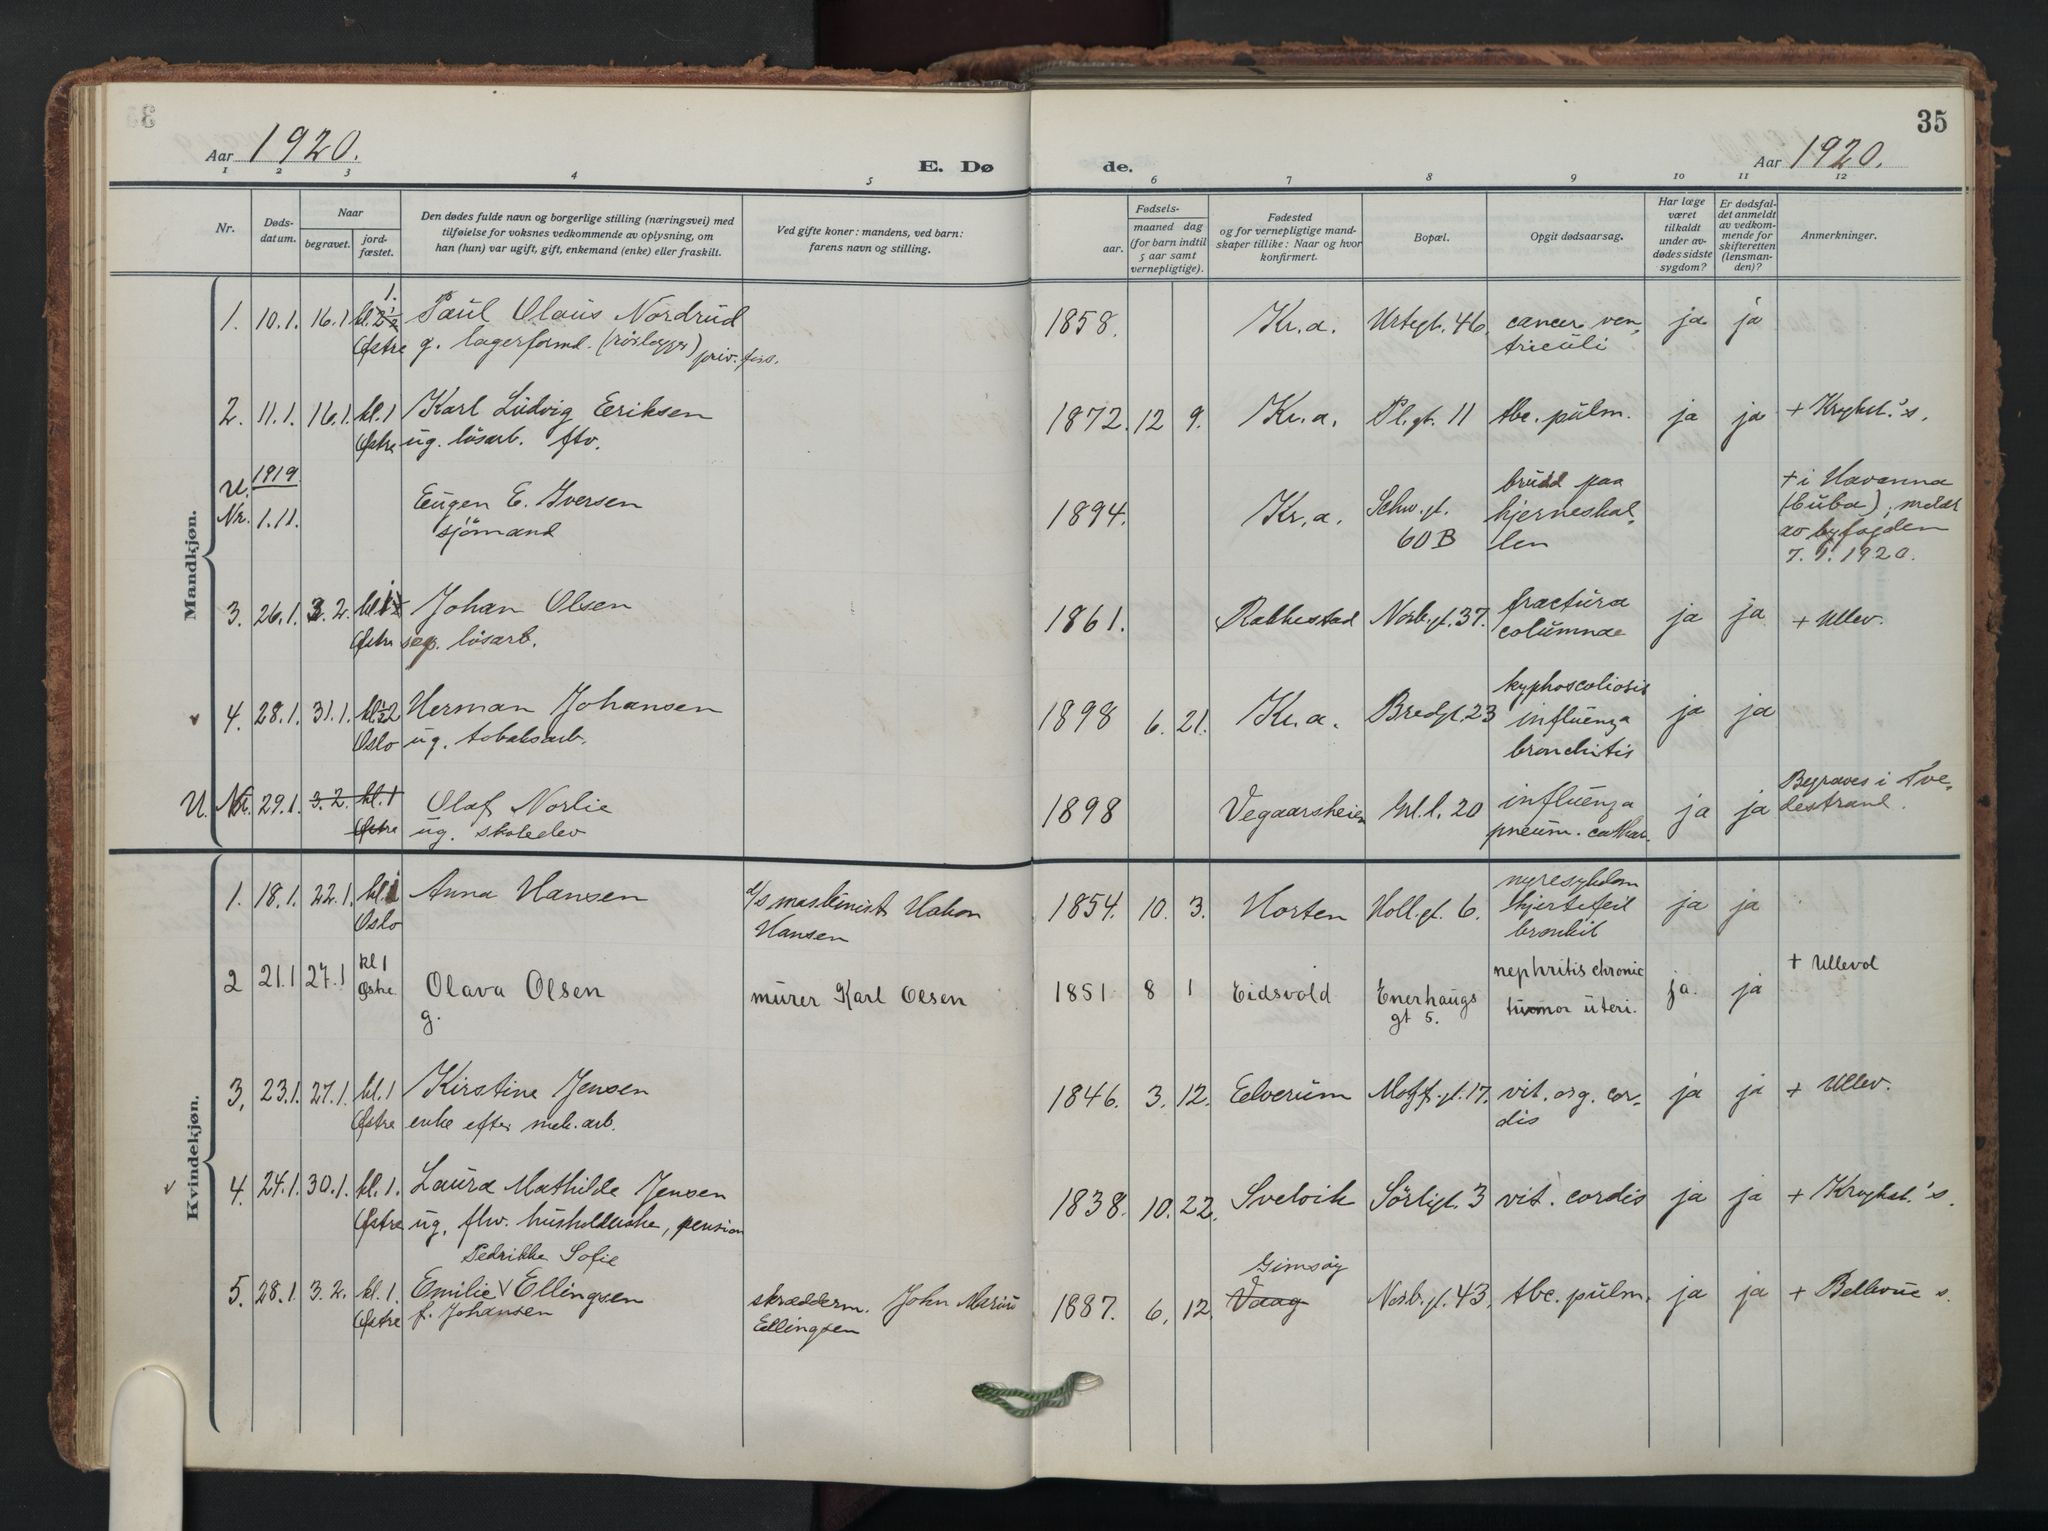 Aar 1920.
E. Dø
de.
Aar 1920.
35
1 2 3 4 5 6 7 8 9 10 11 12
Nr.
Døds-
datum.
Naar
begravet.
jord-
fæstet.
Den dødes fulde navn og borgerlige stilling (næringsvei) med
tilføielse for voksnes vedkommende av oplysning, om
han (hun) var ugift, gift, enkemand (enke) eller fraskilt.
Ved gifte koner: mandens, ved barn:
farens navn og stilling.
Fødsels-
aar. maaned dag
(for barn indtil
5 aar samt
vernepligtige).
Fødested
og for vernepligtige mand-
skaper tillike: Naar og hvor
konfirmert.
Bopæl.
Opgit dødsaarsag.
Har læge
været
tilkaldt
under av-
dødes sidste
sygdom?
Er dødsfal-
det anmeldt
av vedkom-
mende for
skifteretten
(lensman-
den)?
Anmerkninger.
Mandkjøn.
1. 10.1. 16.1 Paul Olaus Nordrud 1858. Kr.a. Urtegt. 46. cancer ven- ja ja
Østre g. lagerformd. (rörlegger) priv. fors. triculi
2. 11.1. 16.1. kl.1 Karl Ludvig Eriksen 1872. 12 9. Kr.a. Pl.gt. 11 tbc. pulm. ja ja + Krohst.'s.
Østre ug. lösarb. ftv.
U. 1919 Eugen E. Iversen 1894. Kr.a. Schw.gt. brudd paa + i Havanna
Nr. 1.11. sjömand 60 B hjerneskal- (Cuba), meldt
len av byfogden
7.1.1920.
3. 26.1. 3.2. kl.1 Johan Olsen 1861. Rakkestad Norb.gt. 37. fractura ja ja + Ullev.
Østre sep. lösarb. columnae
4. 28.1. 31.1. Herman Johansen 1898 6. 21. Kr.a. Bredgt. 23 kyphoscoliosis ja ja
Oslo ug. tobaksarb. influenza
bronchitis
U. Nr. 29.1. 3.2. kl.1 Olaf Norlie 1898 Vegaarsheien Grl.l. 20 influenza ja ja Begraves i Tve-
Østre ug. skoleelev pneum. cathar. destrand.
Kvindekjøn.
1. 18.1. 22.1. kl.1 Anna Hansen d/s maskinist Hakon 1854. 10. 3. Horten Holl.gt. 6. nyresykdom ja ja
Oslo Hansen hjertefeil
bronkit
2 21.1 27.1 kl 1 Olava Olsen murer Karl Olsen 1851 8 1 Eidsvold Enerhaugs nephritis chronic ja. ja + Ullevol
Østre g. gt 5. tumor uteri.
3. 23.1. 27.1. kl.1 Kirstine Jensen 1846. 3. 12. Elverum Motzf.gt. 17. vit. org. cor- ja ja + Ullev.
Østre enke efter mek. arb. dis
4. 24.1. 30.1. kl.1. Laura Mathilde Jensen 1838. 10. 22. Svelvik Sörligt. 3 vit. cordis ja ja + Krohst.'s.
Østre ug. fhv. husholderske, pension
Pedrikke Sofie Gimsøy
5. 28.1. 3.2. kl.1. Emilie V Ellingsen skrædderm. John Marius 1887. 6. 12. Vaag Norb.gt. 43. tbc. pulm. ja ja + Bellevue s.
Østre f. Johansen Ellingsen